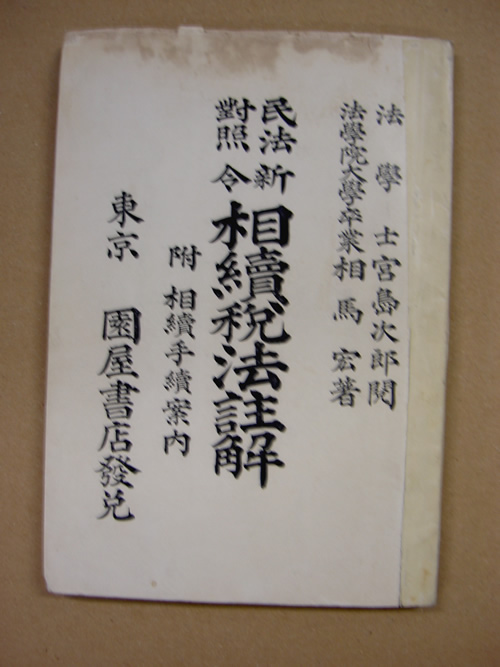 法學士宮島次郎閱
法學院大學卒業相馬宏著
民法
對照
新
令
相續税法註解
附相續手續案内
東京 園屋書店發兌